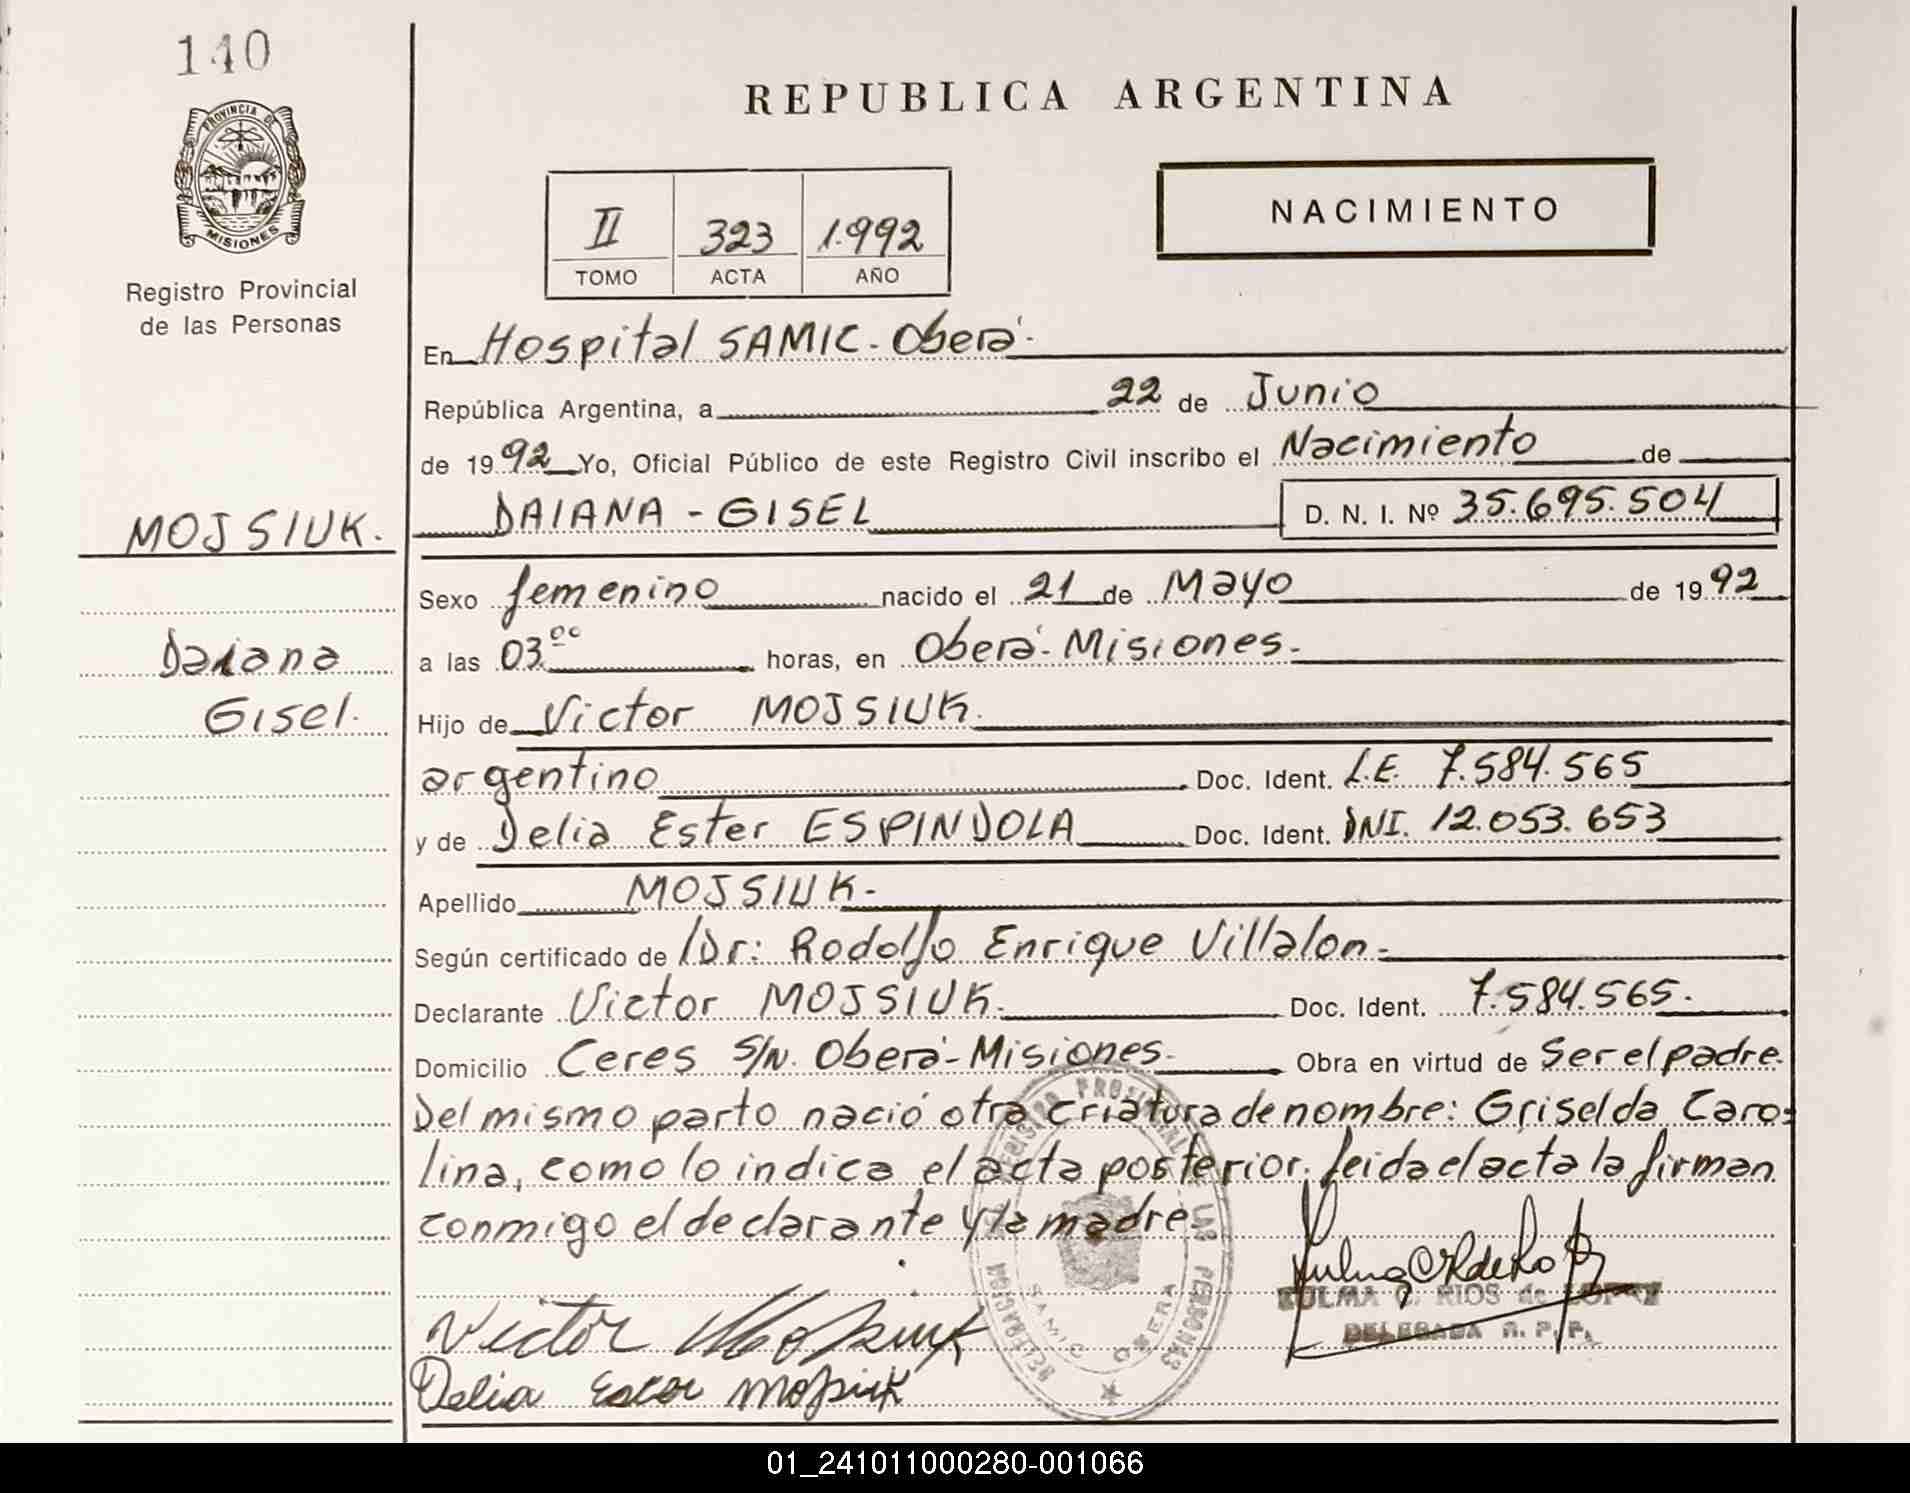 140
PROVINCIA DE
MISIONES
Registro Provincial
de las Personas
MOJSIUK.
Daiana
Gisel.
REPUBLICA ARGENTINA
II 323 1.992
TOMO ACTA AÑO
NACIMIENTO
En Hospital SAMIC - Oberá -
República Argentina, a 22 de Junio
de 1992 Yo, Oficial Público de este Registro Civil inscribo el Nacimiento de
DAIANA - GISEL D. N. I. Nº 35.695.504
Sexo femenino nacido el 21 de Mayo de 1992
a las 03 00 horas, en Oberá - Misiones -
Hijo de Victor MOJSIUK.
argentino Doc. Ident. L.E. 7.584.565
y de Delia Ester ESPINDOLA Doc. Ident. DNI. 12.053.653
Apellido MOJSIUK -
Según certificado de Dr: Rodolfo Enrique Villalon -
Declarante Victor MOJSIUK. Doc. Ident. 7.584.565.
Domicilio Ceres S/N. Oberá - Misiones - Obra en virtud de Ser el padre.
Del mismo parto nació otra criatura de nombre: Griselda Caro-
lina, como lo indica el acta posterior. Leida el acta la firman
conmigo el declarante y la madre.
REGISTRO PROVINCIAL DE LAS PERSONAS
SAMIC OBERA
ZULMA C. RIOS de LOPEZ
DELEGADA R. P. P.
Victor Mojsiuk
Delia Ester Mojsiuk
01_241011000280-001066